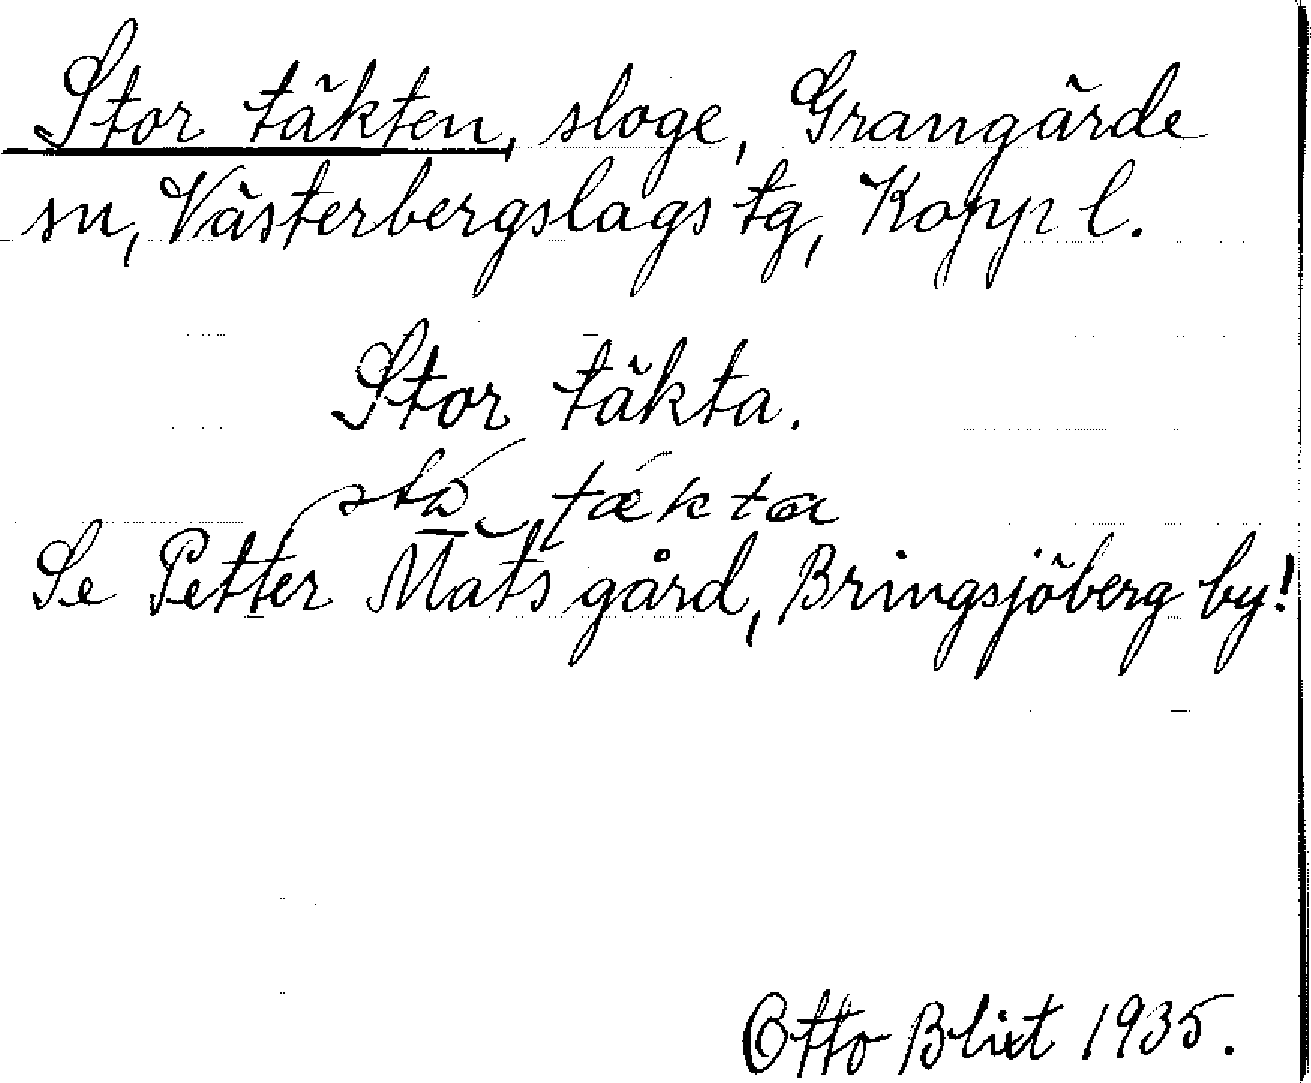 Stor täkten, sloge, Grangärde
sn, Västerbergslags tg, Kopp l.
Stor täkta.
stá tǽkta
Se Petter Mats gård, Bringsjöberg by!
Otto Blixt 1935.